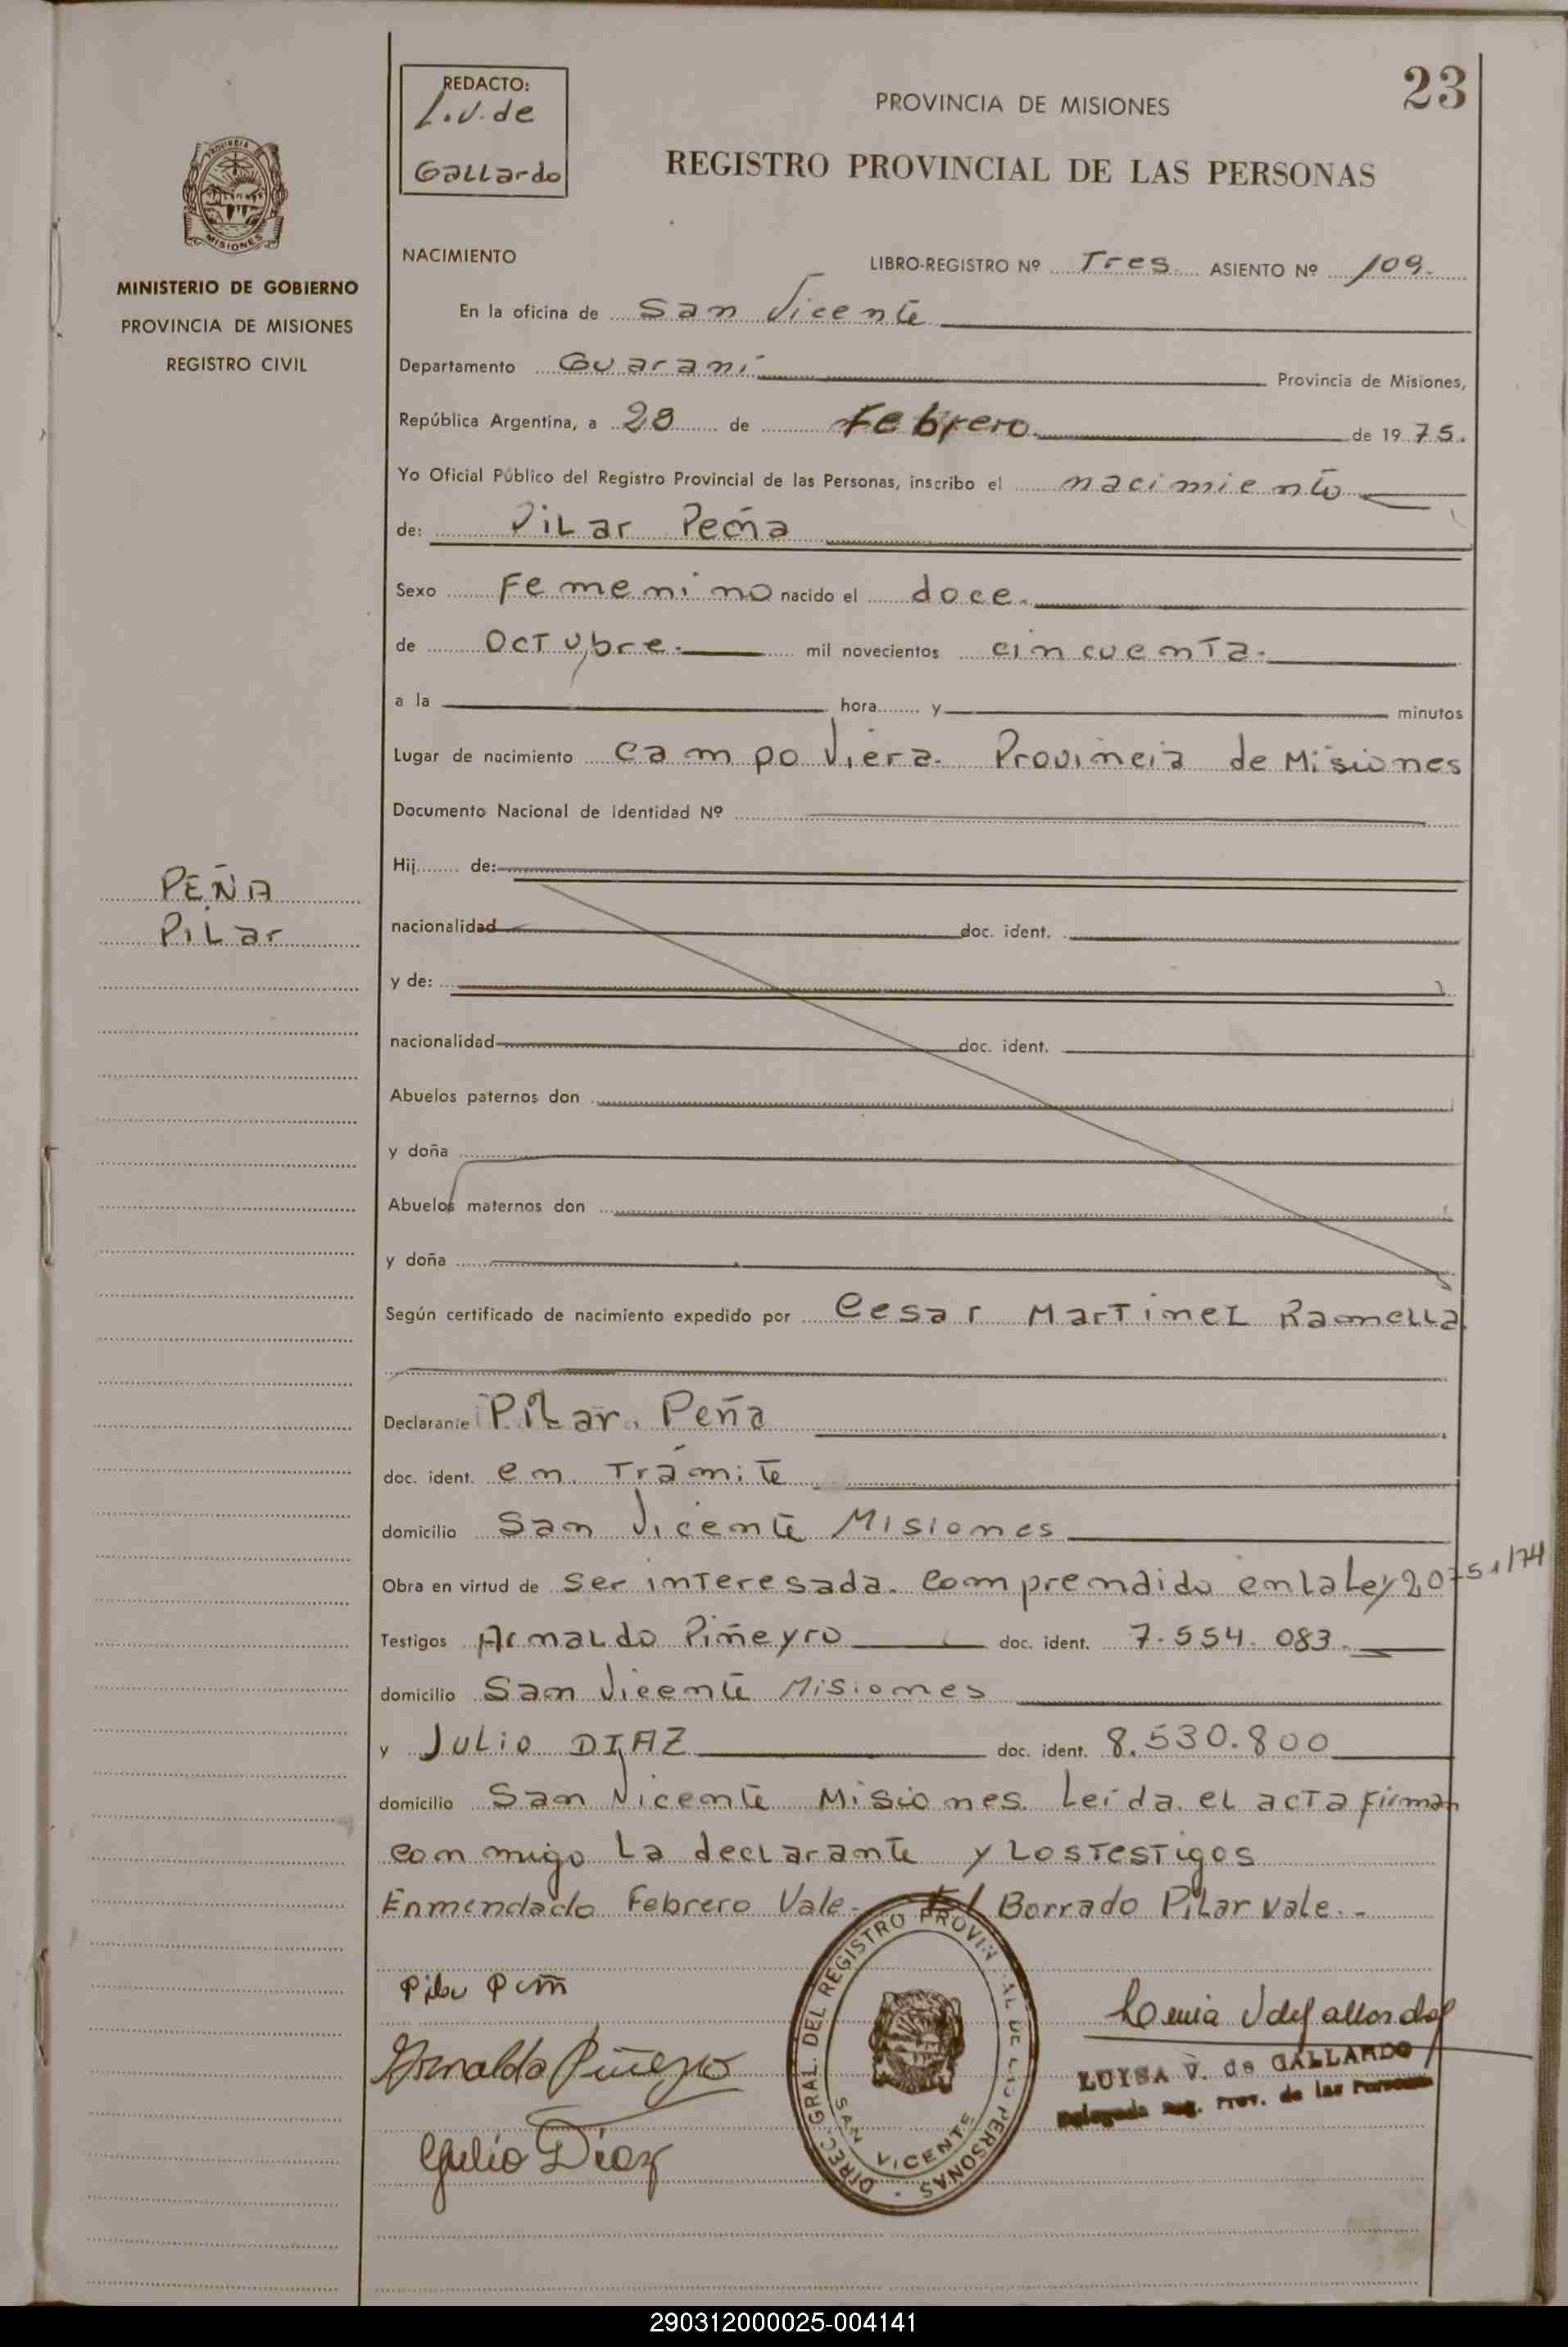 23
REDACTO:
L.V. de
Gallardo
PROVINCIA DE MISIONES
REGISTRO PROVINCIAL DE LAS PERSONAS
PROVINCIA DE
MISIONES
MINISTERIO DE GOBIERNO
PROVINCIA DE MISIONES
REGISTRO CIVIL
NACIMIENTO
LIBRO-REGISTRO Nº Tres ASIENTO Nº 109.
En la oficina de San Vicente
Departamento Guaraní Provincia de Misiones,
República Argentina, a 28 de Febrero de 1975.
Yo Oficial Público del Registro Provincial de las Personas, inscribo el nacimiento
de: Pilar Peña
Sexo Femenino nacido el doce.
de Octubre. mil novecientos cincuenta.
a la hora y minutos
Lugar de nacimiento Campo Viera. Provincia de Misiones
Documento Nacional de Identidad Nº
Hij de:
PEÑA
Pilar
nacionalidad doc. ident.
y de:
nacionalidad doc. ident.
Abuelos paternos don
y doña
Abuelos maternos don
y doña
Según certificado de nacimiento expedido por Cesar Martinez Ramella
Declarante Pilar Peña
doc. ident. en Trámite
domicilio San Vicente Misiones
Obra en virtud de ser interesada. comprendido en la Ley 20751/74
Testigos Arnaldo Piñeyro doc. ident. 7.554.083.
domicilio San Vicente Misiones
y Julio DIAZ doc. ident. 8.530.800
domicilio San Vicente Misiones Leída el acta firman
conmigo la declarante y los testigos
Enmendado Febrero Vale. El Borrado Pilar vale.-
Pilar Peña
Arnaldo Piñeyro
Julio Díaz
DIREC. GRAL. DEL REGISTRO PROVINCIAL DE LAS PERSONAS
SAN VICENTE
Luisa V de Gallardo
LUISA V. de GALLARDO
Delegada Reg. Prov. de las Personas
290312000025-004141